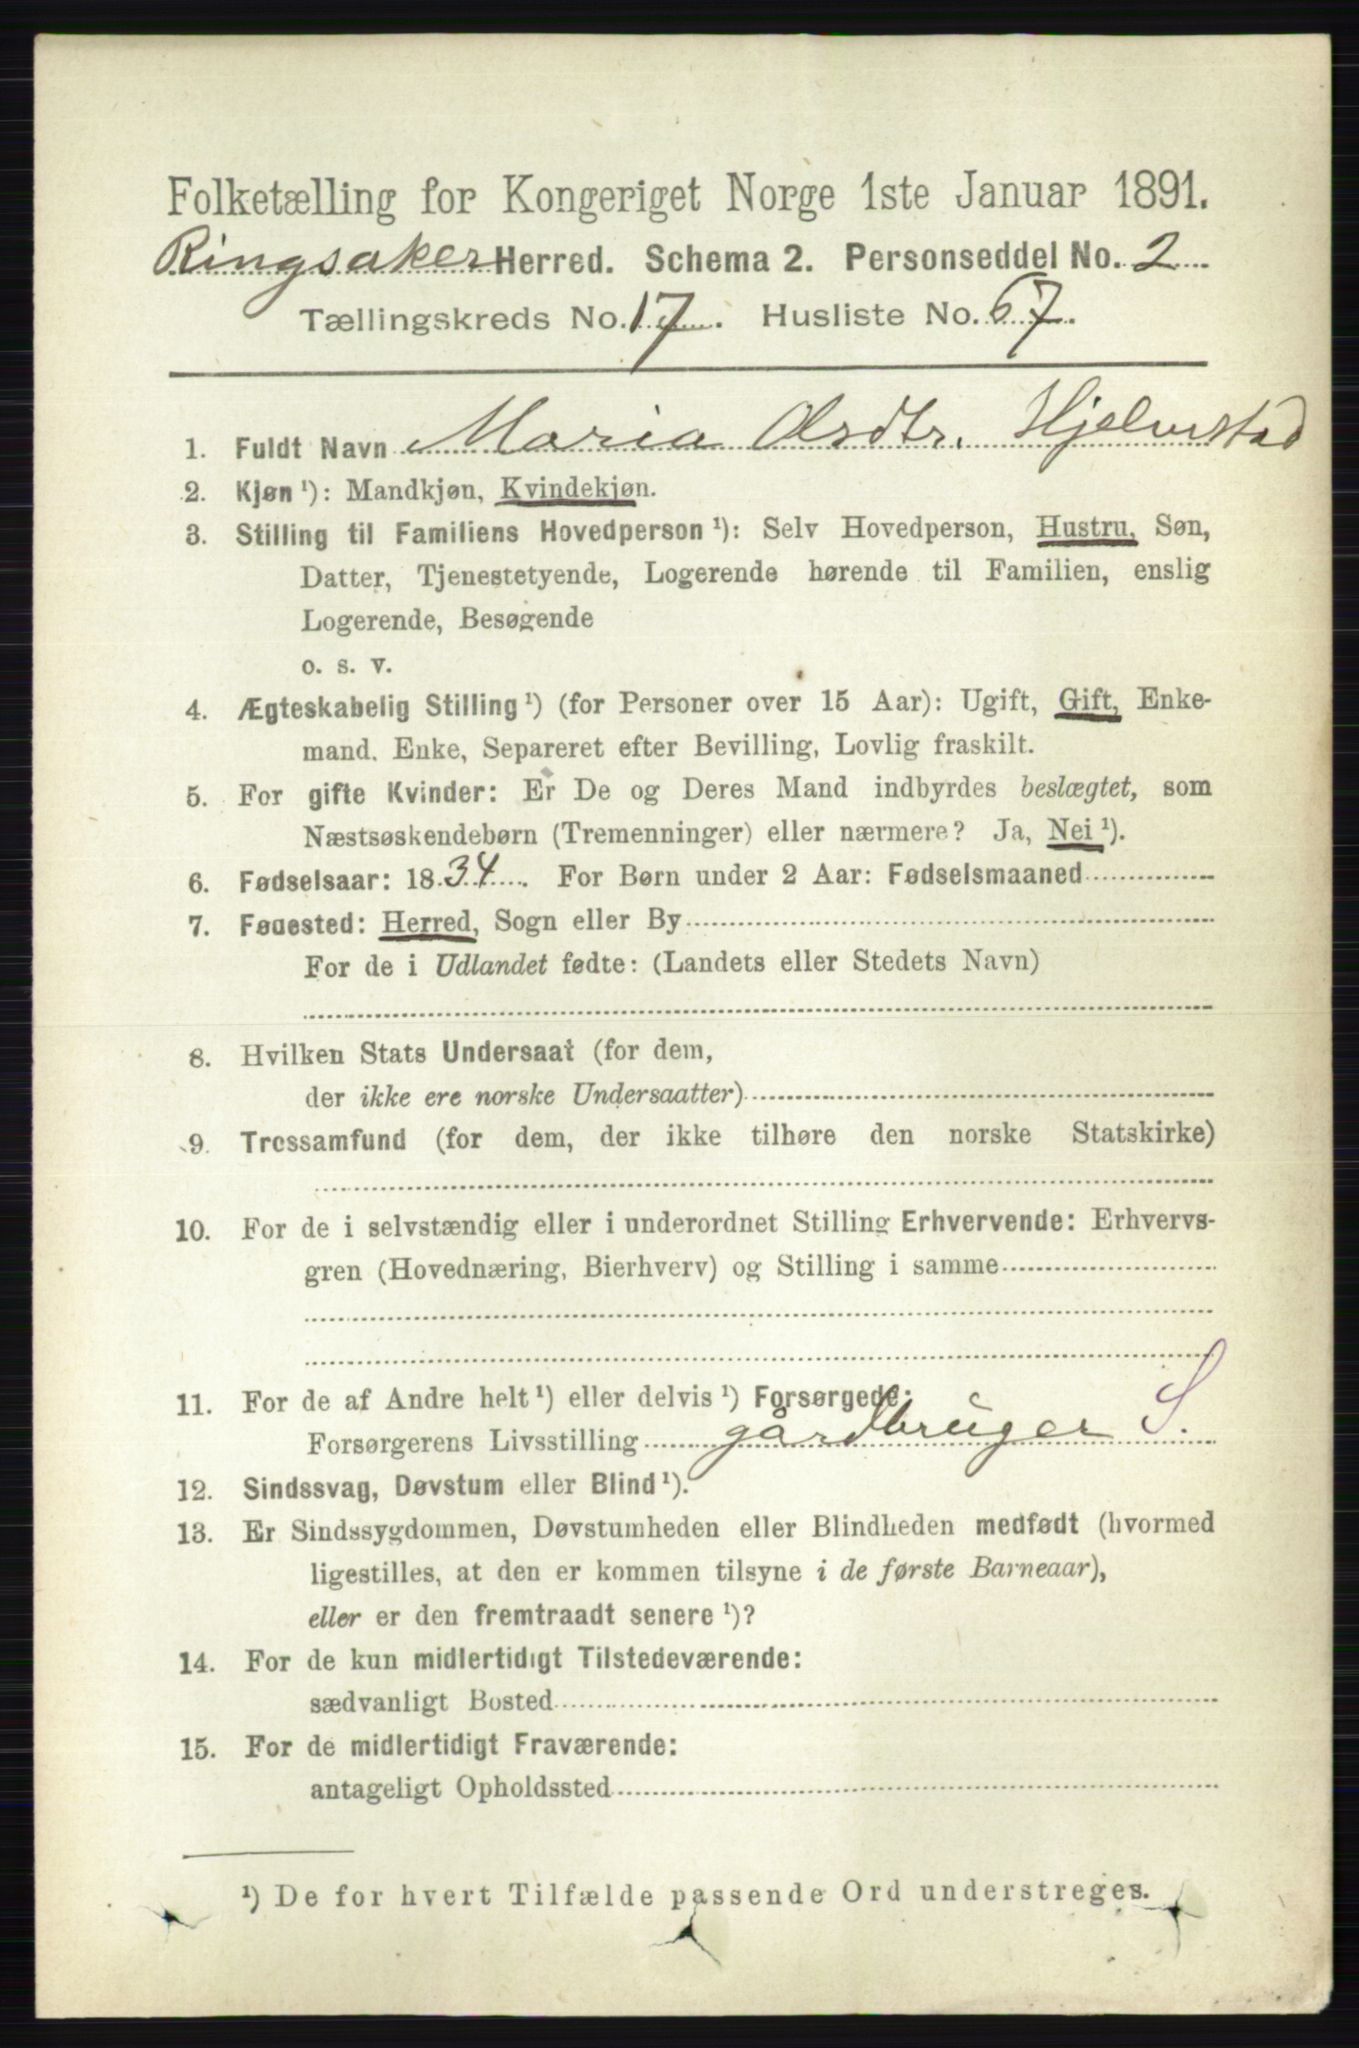 Folketælling for Kongeriget Norge 1ste Januar 1891.
Ringsaker Herred. Schema 2. Personseddel No. 2
Tællingskreds No. 17. Husliste No. 67.
1. Fuldt Navn Maria Olsdtr. Hjelmstad
2. Kjøn ¹): Mandkjøn, Kvindekjøn.
3. Stilling til Familiens Hovedperson ¹): Selv Hovedperson, Hustru, Søn,
Datter, Tjenestetyende, Logerende hørende til Familien, enslig
Logerende, Besøgende
o. s. v.
4. Ægteskabelig Stilling ¹) (for Personer over 15 Aar): Ugift, Gift, Enke-
mand, Enke, Separeret efter Bevilling, Lovlig fraskilt.
5. For gifte Kvinder: Er De og Deres Mand indbyrdes beslægtet, som
Næstsøskendebørn (Tremenninger) eller nærmere? Ja, Nei ¹).
6. Fødselsaar: 1834. For Børn under 2 Aar: Fødselsmaaned
7. Fødested: Herred, Sogn eller By
For de i Udlandet fødte: (Landets eller Stedets Navn)
8. Hvilken Stats Undersaat (for dem,
der ikke ere norske Undersaatter)
9. Trossamfund (for dem, der ikke tilhøre den norske Statskirke)
10. For de i selvstændig eller i underordnet Stilling Erhvervende: Erhvervs-
gren (Hovednæring, Bierhverv) og Stilling i samme
11. For de af Andre helt ¹) eller delvis ¹) Forsørgede:
Forsørgerens Livsstilling gårdbruger S.
12. Sindssvag, Døvstum eller Blind ¹).
13. Er Sindssygdommen, Døvstumheden eller Blindheden medfødt (hvormed
ligestilles, at den er kommen tilsyne i de første Barneaar),
eller er den fremtraadt senere ¹)?
14. For de kun midlertidigt Tilstedeværende:
sædvanligt Bosted
15. For de midlertidigt Fraværende:
antageligt Opholdssted
¹) De for hvert Tilfælde passende Ord understreges.